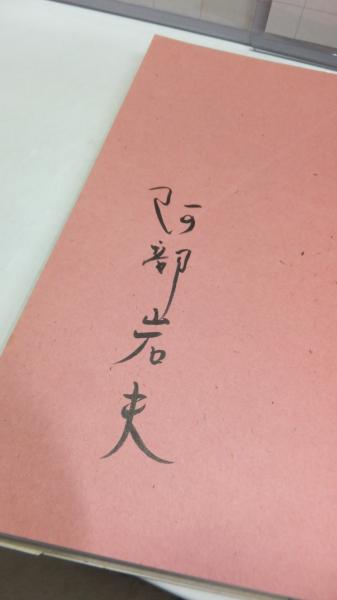 阿部岩夫